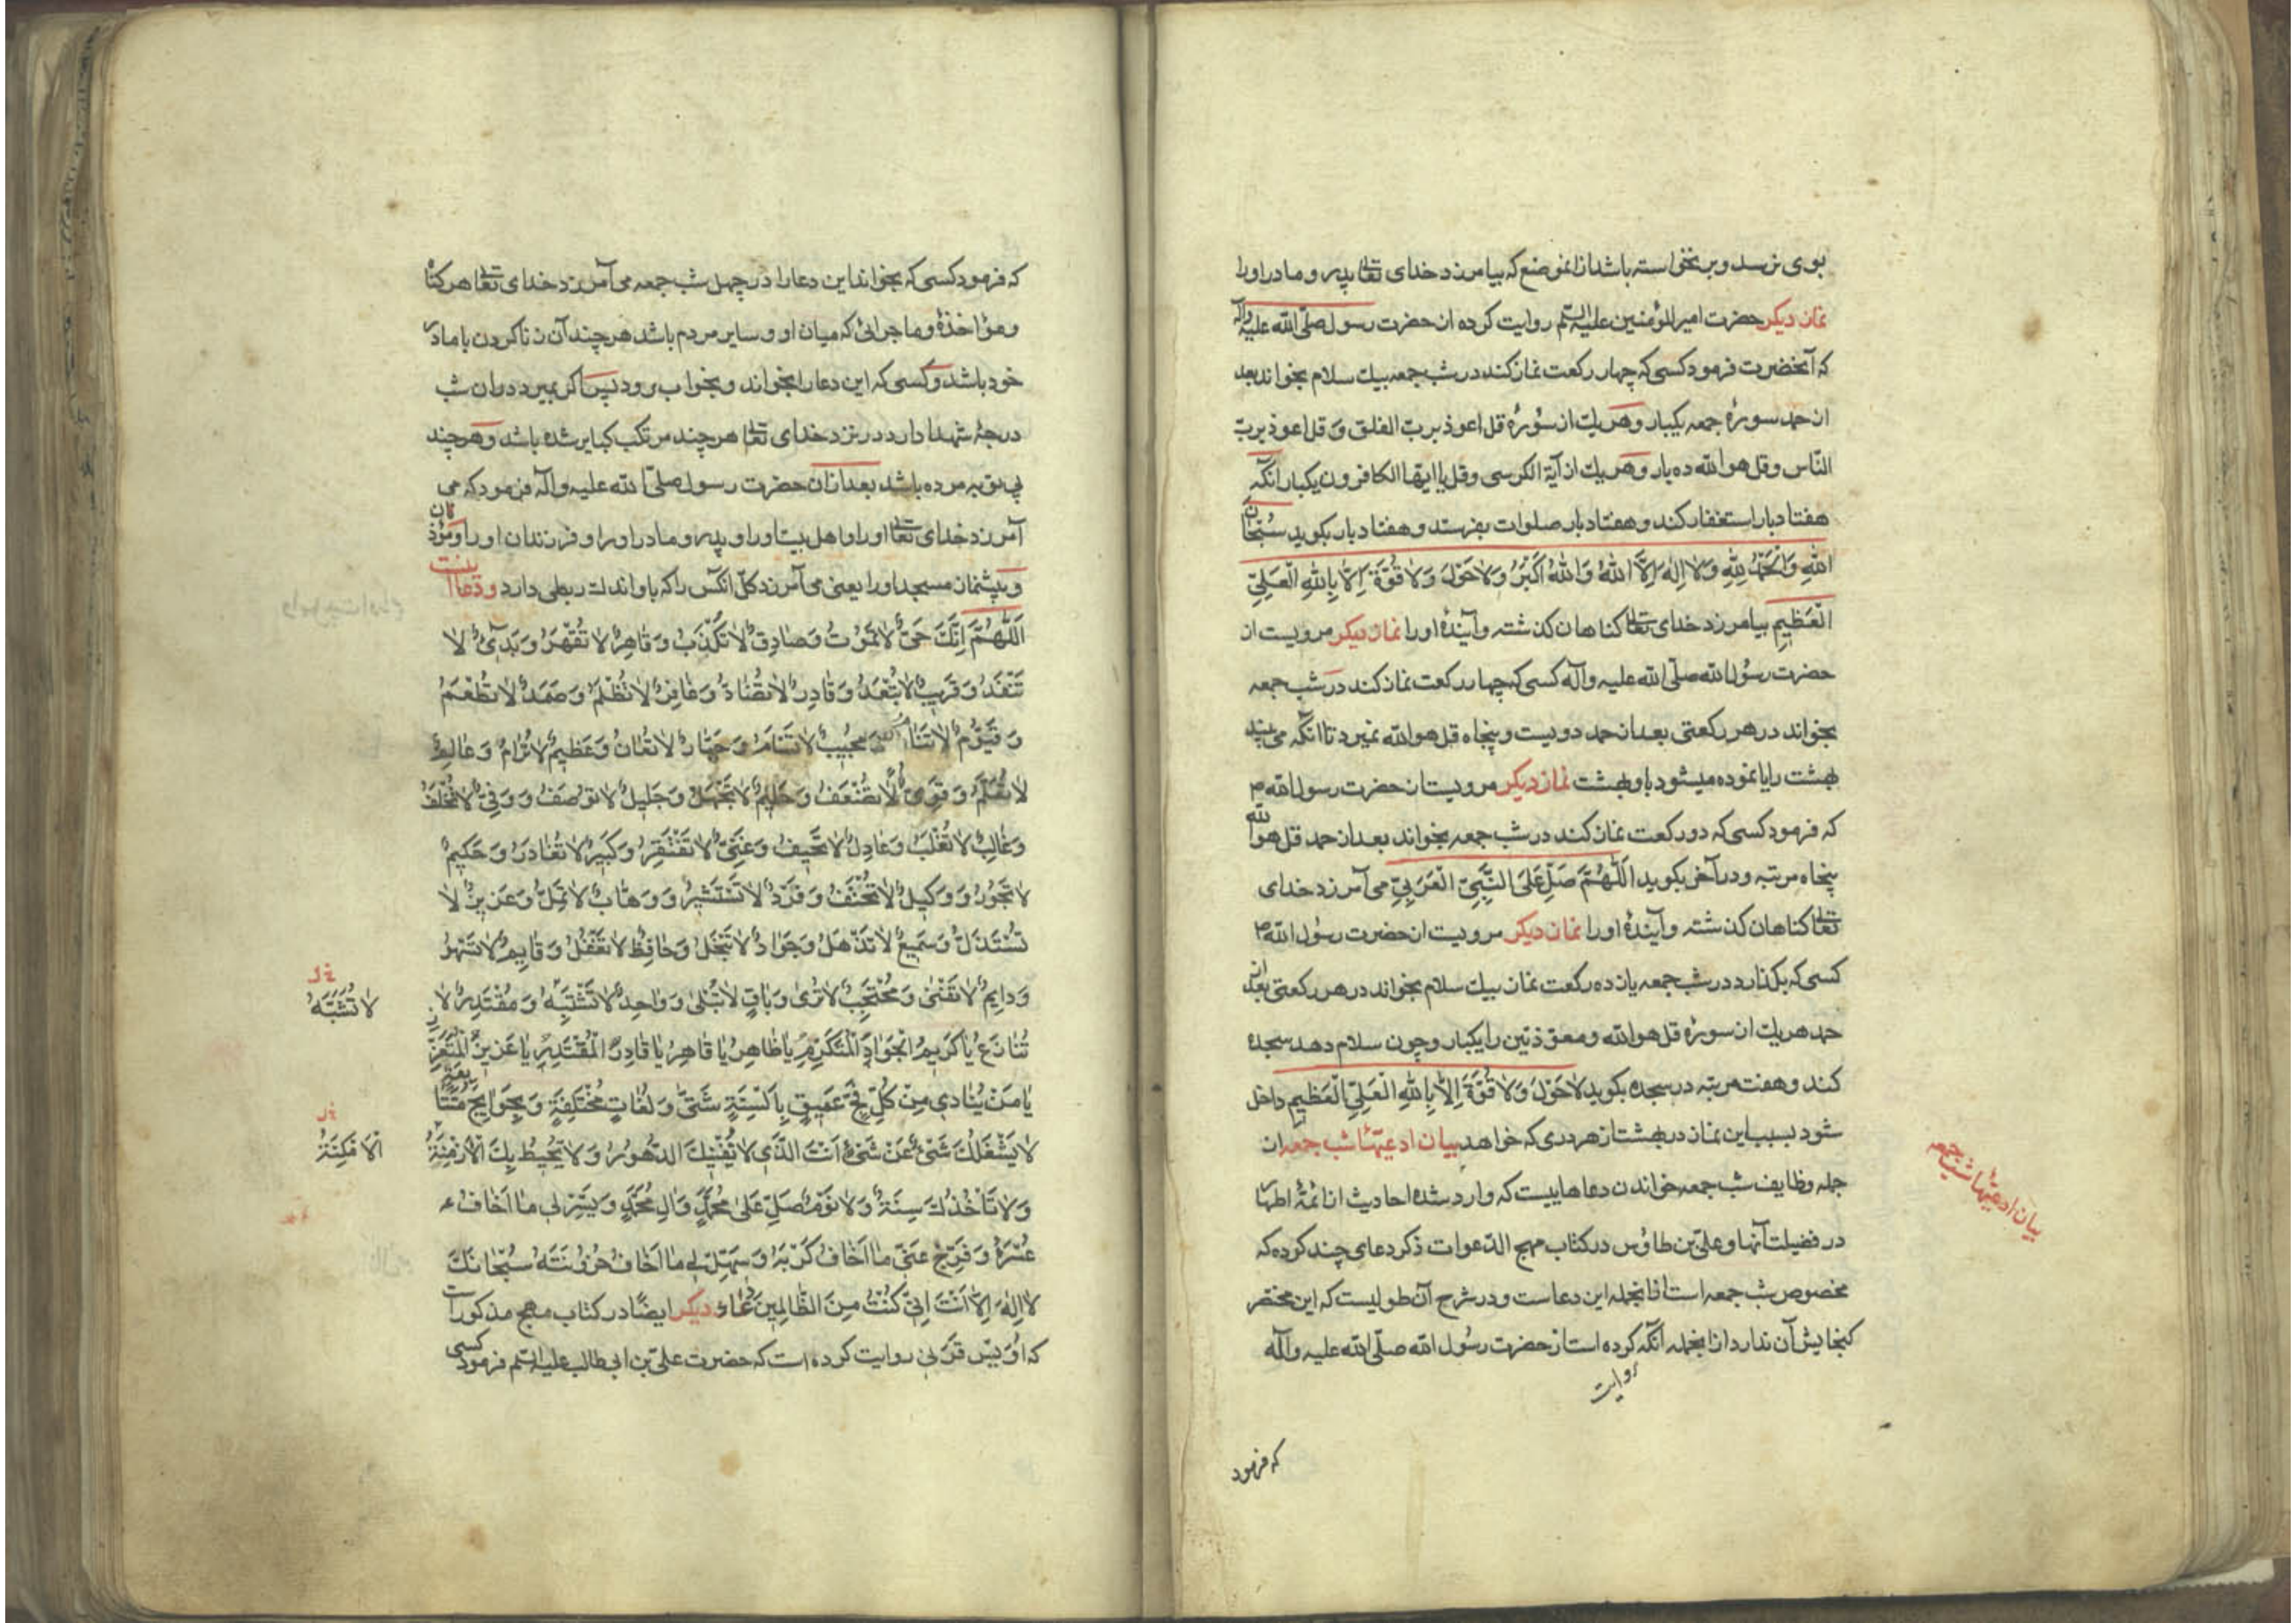 بوی نرسد وبر نخواسته باشد ازانموضع که بیامرزد خدای تعالی پدر و مادر اورا
نماز دیکر حضرت امیرالمؤمنین علیه السلم روایت کرده از حضرت رسول صلّی الله علیه وآله
که آنحضرت فرمود کسی که چهار رکعت نماز کند در شب جمعه بیک سلام بخواند بعد
از حمد سورهٔ جمعه یکبار وهریک از سُورهٔ قل اعوذ بربّ الفلق وقل اعوذ بربّ
النّاس وقل هوالله ده بار وهریک از آیة الکرسی وقل یا ایّها الکافرون یکبار انکه
هفتاد بار استغفار کند وهفتاد بار صلوات بفرستد وهفتاد بار بکوید سُبْحَانَ
اللهِ وَالْحَمْدُ لِلّهِ وَلا اِلٰهَ اِلَّا اللهُ وَاللهُ اَكْبَرُ وَلا حَوْلَ وَلا قُوَّةَ اِلّا بِاللهِ الْعَلِيِّ
الْعَظِيمِ بیامرزد خدای تعالی کناهان کذشته وآیندهٔ اورا نماز دیکر مرویست از
حضرت رسُول الله صلّی الله علیه وآله کسی که چهار رکعت نماز کند در شب جمعه
بخواند در هر رکعتی بعد از حمد دویست وپنجاه قل هوالله نمیرد تا آنکه می بیند
بهشت را یا نموده میشود باو بهشت نماز دیکر مرویست از حضرت رسول الله ص
که فرمود کسی که دو رکعت نماز کند در شب جمعه بخواند بعد از حمد قل هو الله
پنجاه مرتبه ودر آخر بکوید اَللّهُمَّ صَلِّ عَلَى النَّبِيِّ الْعَرَبِيِّ می آمرزد خدای
تعالی کناهان کذشته وآیندهٔ اورا نماز دیکر مرویست از حضرت رسُول الله ص
کسی که بکذارد در شب جمعه یازده رکعت نماز بیک سلام بخواند در هر رکعتی بعد از
حمد هریک از سورهٔ قل هوالله ومعوّذتین را یکبار وچون سلام دهد سجده
کند وهفت مرتبه در سجده بکوید لا حَوْلَ وَلا قُوَّةَ اِلّا بِاللهِ الْعَلِيِّ الْعَظِيمِ داخل
شود بسبب این نماز در بهشت از هر دری که خواهد بیان ادعیتهاشب جمعه از
جمله وظایف شب جمعه خواندن دعاهاییست که وارد شده احادیث از ائمّهٔ اطهار
در فضیلت آنها وعلیّ بن طاوُس در کتاب مهج الدّعوات ذکر دعای چند کرده که
مخصوص شب جمعه است ازانجمله این دعاست ودر شرح آن طولیست که این مختصر
کنجایش آن ندارد ازانجمله آنکه کرده است از حضرت رسُول الله صلّی الله علیه وآله
روایت
که فرمود
بیان ادعیتهاشب جمعه
که فرمود کسی که بخواند این دعا را در چهل شب جمعه می آمرزد خدای تعالی هر کناه
ومؤاخذهٔ وماجرائی که میان او وسایر مردم باشد هر چند آن زنا کردن با مادر
خود باشد وکسی که این دعا را بخواند وبخواب رود پس اکر بمیرد دران شب
درجهٔ شهدا دارد در نزد خدای تعالی هر چند مرتکب کبایر شده باشد وهر چند
بی توبه مرده باشد بعد ازان حضرت رسول صلّی الله علیه وآله فرمود که می
آمرزد خدای تعالی اورا واهل بیت اورا وپدر ومادر اورا وفرزندان اورا ومؤذنان
وپیشنماز مسجد اورا یعنی می آمرزد کلّ انکس را که باو اندک ربطی دارد ودعا اینست
اَللّهُمَّ اِنَّكَ حَيٌّ لا تَمُوتُ وَصَادِقٌ لا تَكْذِبُ وَقَاهِرٌ لا تُقْهَرُ وَبَدِيءٌ لا
تَنْفَدُ وَقَرِيبٌ لا تَبْعُدُ وَقَادِرٌ لا تُضَادُّ وَغَافِرٌ لا تَظْلِمُ وَصَمَدٌ لا تُطْعَمُ
وَقَيُّومٌ لا تَنَامُ وَمُجِيبٌ لا تَسْأَمُ وَجَبَّارٌ لا تُعَانُ وَعَظِيمٌ لا تُرَامُ وَعَالِمٌ
لا تُعَلَّمُ وَقَوِيٌّ لا تَضْعُفُ وَحَلِيمٌ لا تَجْهَلُ وَجَلِيلٌ لا تُوصَفُ وَوَفِيٌّ لا تُخْلِفُ
وَغَالِبٌ لا تُغْلَبُ وَعَادِلٌ لا تَحِيفُ وَغَنِيٌّ لا تَفْتَقِرُ وَكَبِيرٌ لا تُغَادِرُ وَحَكِيمٌ
لا تَجُورُ وَوَكِيلٌ لا تُخْفَفُ وَفَرْدٌ لا تَسْتَشِيرُ وَوَهَّابٌ لا تَمَلُّ وَعَزِيزٌ لا
تُسْتَذَلُّ وَسَمِيعٌ لا تَذْهَلُ وَجَوَادٌ لا تَبْخَلُ وَحَافِظٌ لا تَغْفُلُ وَقَايِمٌ لا تَسْهُو
وَدَايِمٌ لا تَفْنىٰ وَمُحْتَجِبٌ لا تُرىٰ وَبَاقٍ لا تَبْلىٰ وَوَاحِدٌ لا تَشْتَبِهُ وَمُقْتَدِرٌ لا
تُنَازَعُ يَا كَرِيمُ الْجَوَادُ الْمُتَكَرِّمُ يَا ظَاهِرُ يَا قَاهِرُ يَا قَادِرُ الْمُقْتَدِرُ يَا عَزِيزُ الْمُتَعَزِّزُ
يَا مَنْ يُنَادىٰ مِنْ كُلِّ فَجٍّ عَمِيقٍ بِاَلْسِنَةٍ شَتّىٰ وَلُغَاتٍ مُخْتَلِفَةٍ وَحَوَايِجَ مُتَتَابِعَةٍ
لا يَشْغَلُكَ شَيْءٌ عَنْ شَيْءٍ اَنْتَ الَّذِي لا تُفْنِيكَ الدُّهُورُ وَلا تُحِيطُ بِكَ الْاَزْمِنَةُ
وَلا تَاْخُذُكَ سِنَةٌ وَلا نَوْمٌ صَلِّ عَلىٰ مُحَمَّدٍ وَالِ مُحَمَّدٍ وَيَسِّرْ لِي مَا اَخَافُ
عُسْرَهُ وَفَرِّجْ عَنِّي مَا اَخَافُ كَرْبَهُ وَسَهِّلْ لِي مَا اَخَافُ حُزُونَتَهُ سُبْحَانَكَ
لا اِلٰهَ اِلّا اَنْتَ اِنِّي كُنْتُ مِنَ الظَّالِمِينَ دعاء دیکر ایضًا در کتاب مهج مذکور است
که اُوَیس قَرَنی روایت کرده است که حضرت علیّ بن ابی طالب علیه السلم فرمود کسی
لا تُشْبَهُ
اَلْاَمْكِنَةُ